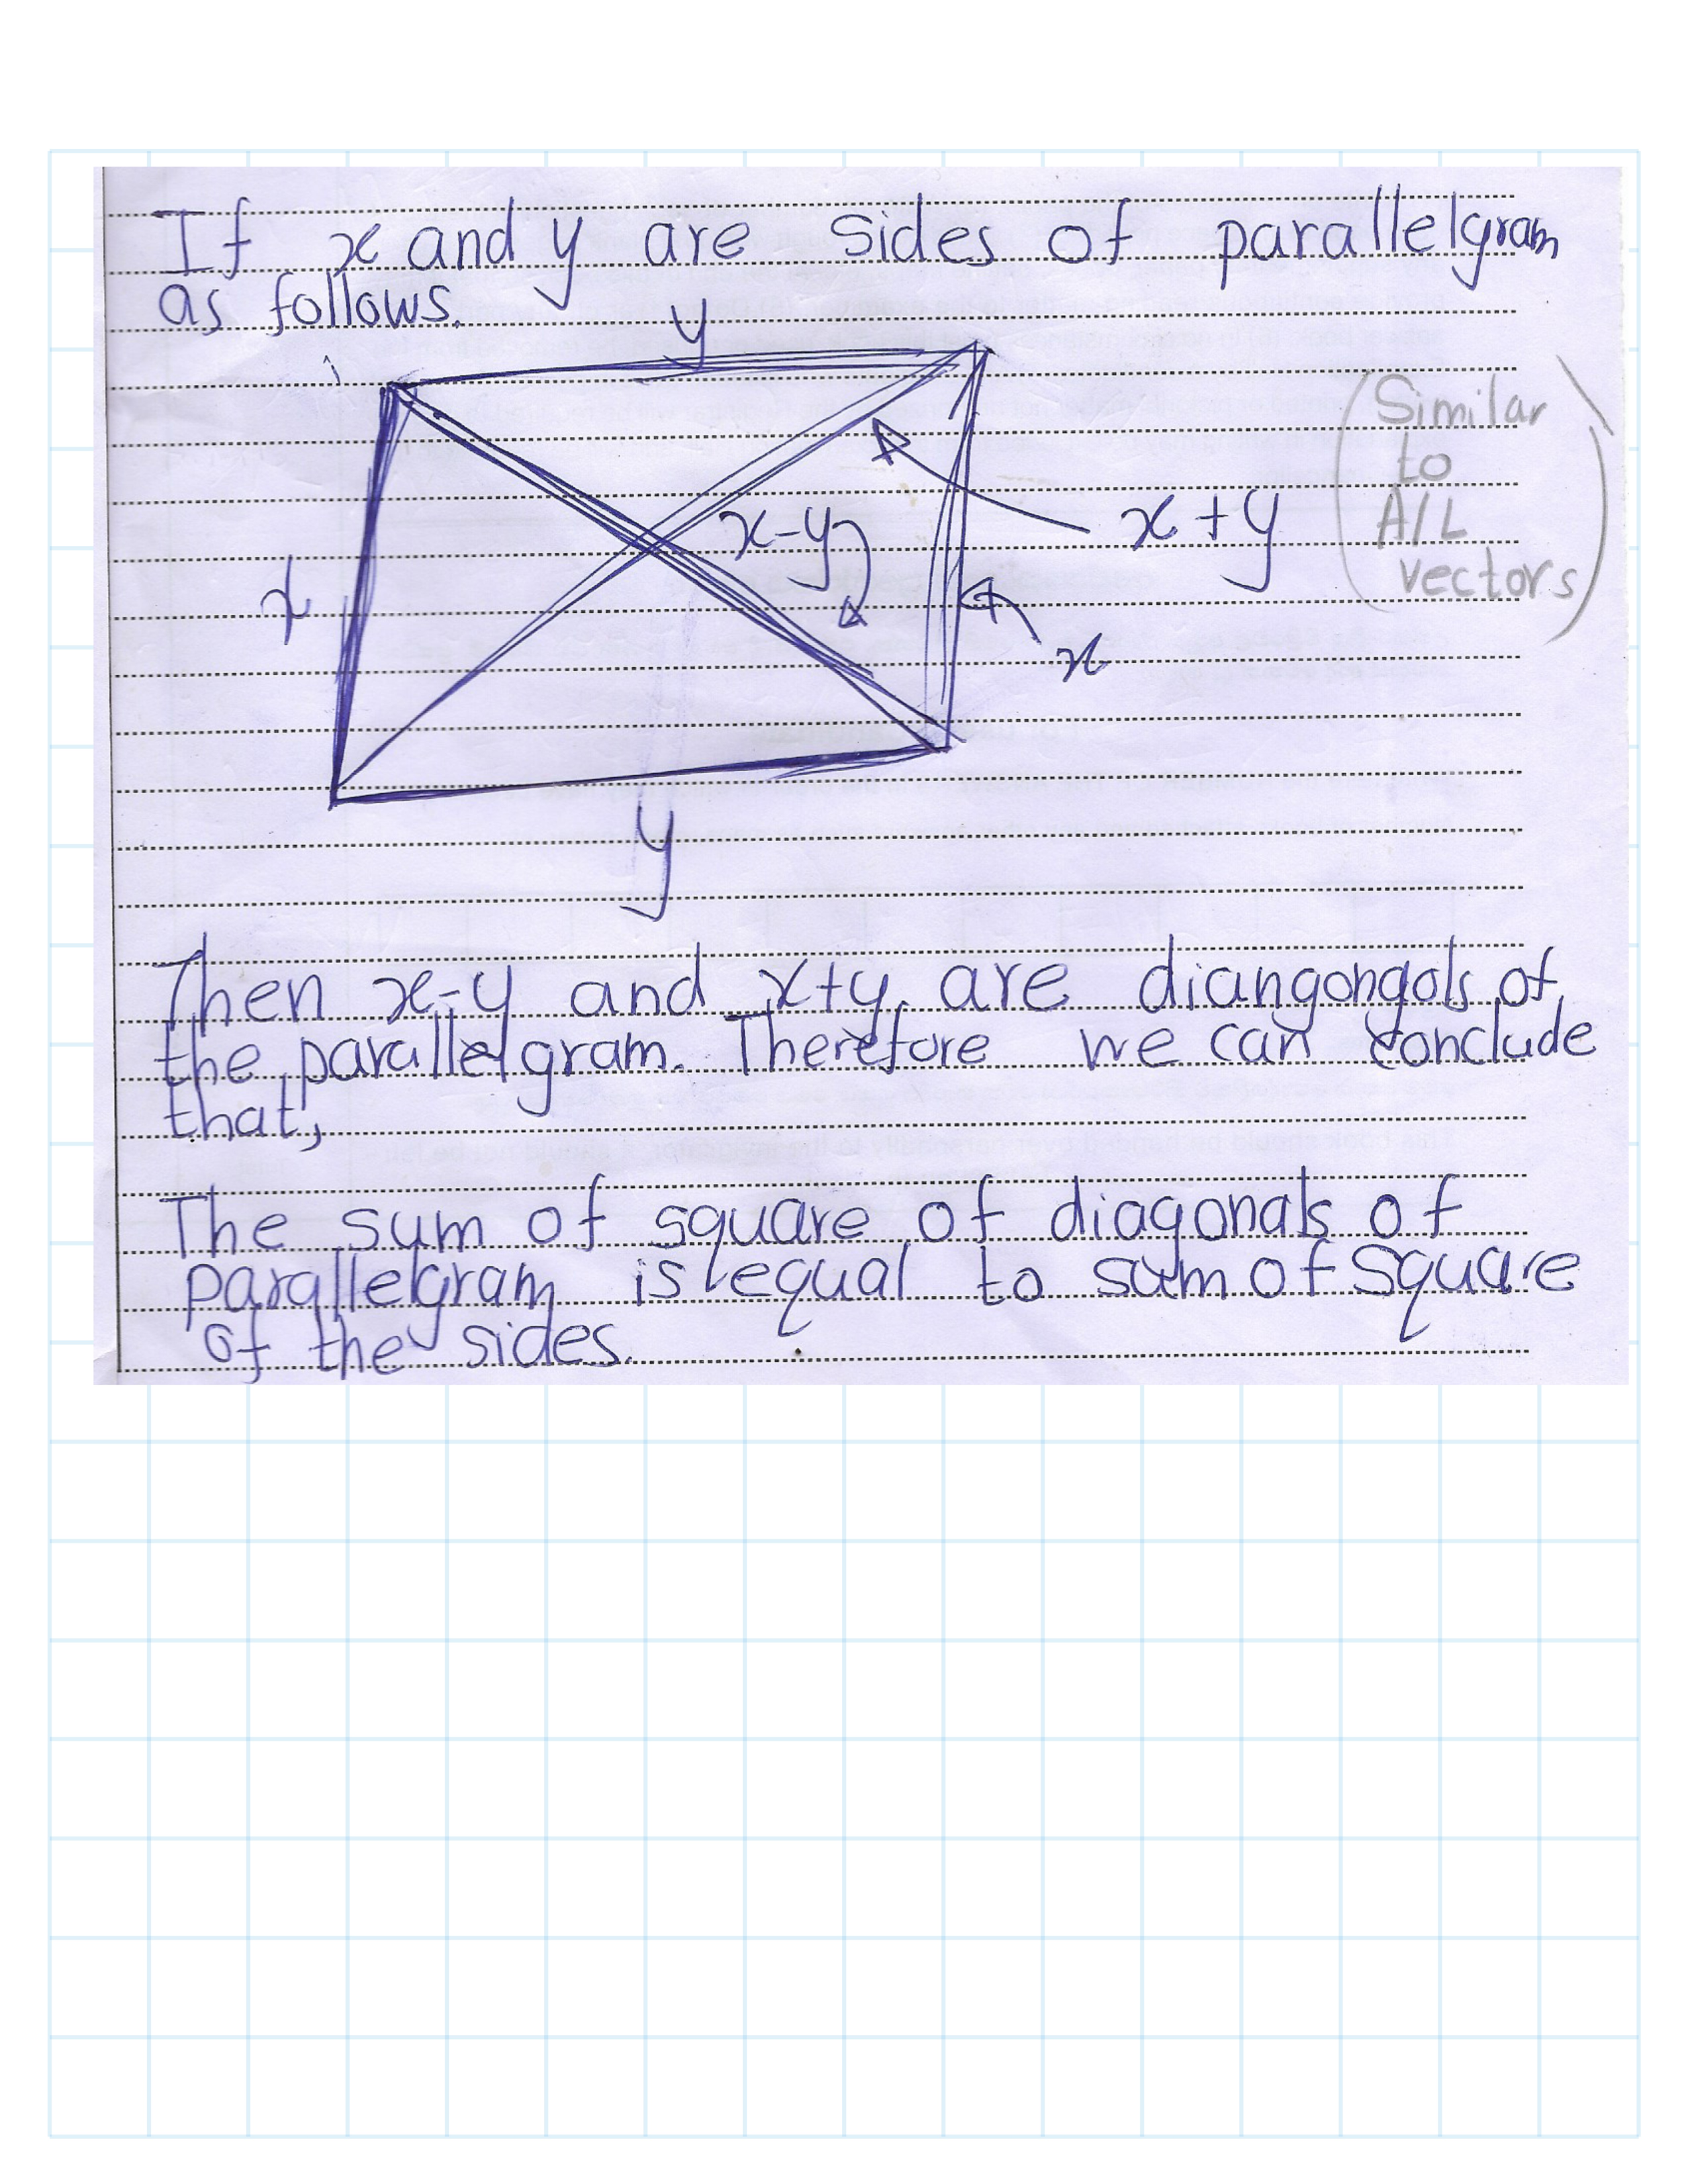 If x and y are sides of parallelgram
as follows.
y
(Similar
to
A/L
vectors)
x-y
x+y
x
x
y
Then x-y and x+y are diangongals of
the parallelgram. Therefore we can conclude
that,
The sum of square of diagonals of
parallelgram is equal to sum of square
of the sides.